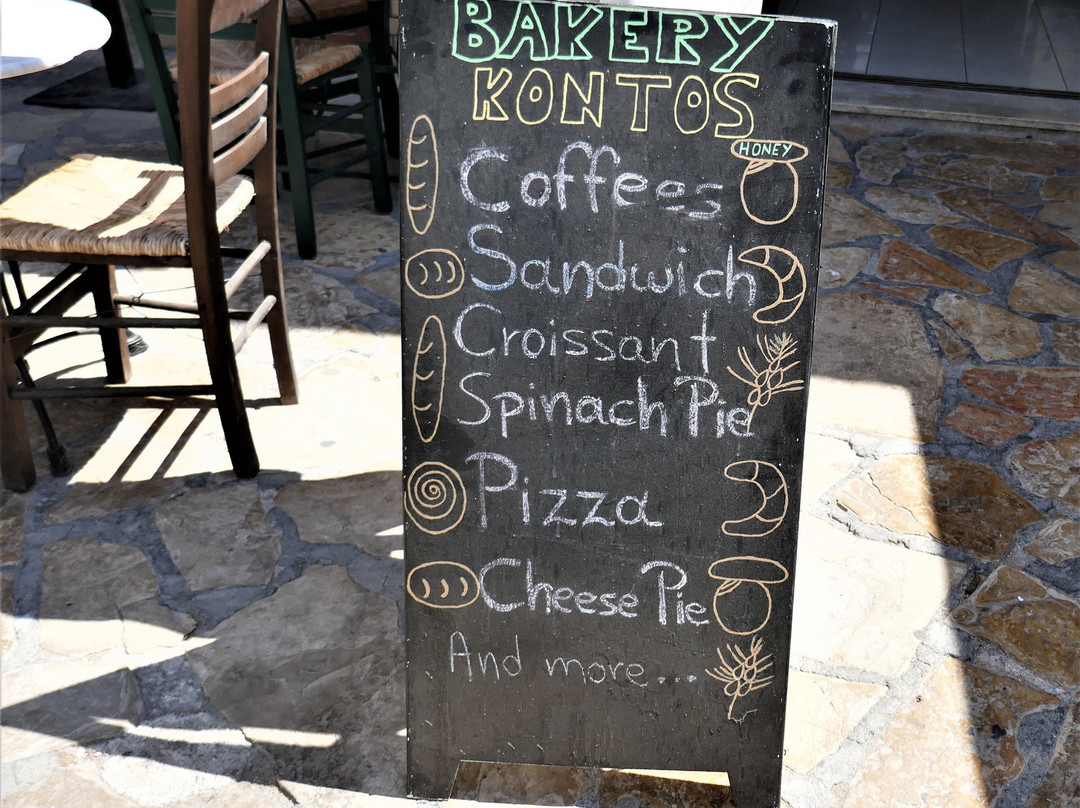 BAKERY
KONTOS
HONEY
Coffees
Sandwich
Croissant
Spinach Pie
Pizza
Cheese Pie
And more...